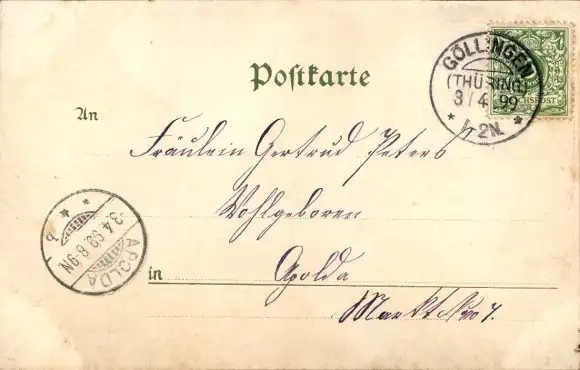 Postkarte
GÖLLINGEN
(THÜRING.)
3/4 99
1-2N.
CHSPOST
An
Fräulein Gertrud Peters
Wohlgeboren
in Apolda
Markt No 7.
APOLDA
3.4.99.8-9N
b